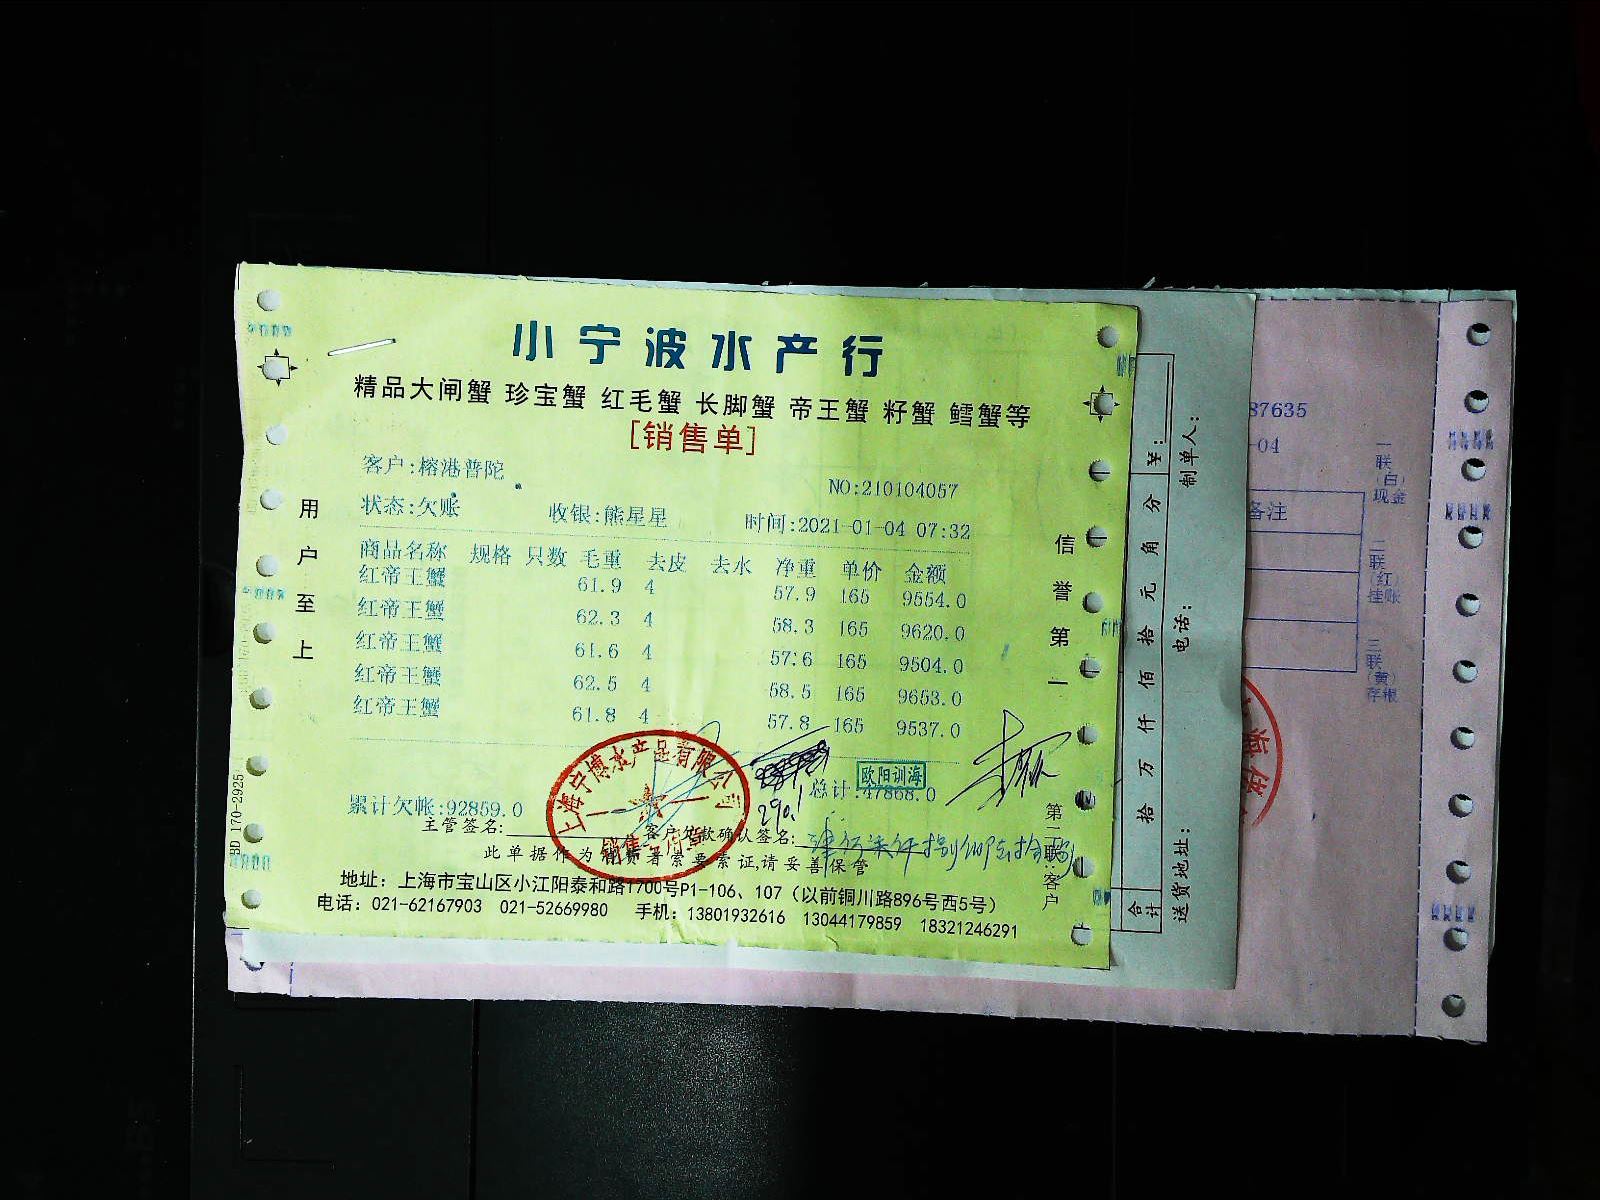 小宁波水产行
精品大闸蟹 珍宝蟹 红毛蟹 长脚蟹 帝王蟹 籽蟹 鳕蟹等
[销售单]
客户:榕港普陀
NO:210104057
状态:欠账 收银:熊星星 时间:2021-01-04 07:32
商品名称 规格 只数 毛重 去皮 去水 净重 单价 金额
红帝王蟹 61.9 4 57.9 165 9554.0
红帝王蟹 62.3 4 58.3 165 9620.0
红帝王蟹 61.6 4 57.6 165 9504.0
红帝王蟹 62.5 4 58.5 165 9653.0
红帝王蟹 61.8 4 57.8 165 9537.0
290.1
累计欠帐:92859.0 总计:47868.0
欧阳训海
主管签名: 客户欠款确认签名:
此单据作为 证,请妥善保管
地址：上海市宝山区小江阳泰和路1700号P1-106、107（以前铜川路896号西5号）
电话：021-62167903 021-52669980 手机：13801932616 13044179859 18321246291
用户至上
信誉第一
第二联:客户
BD 170-2925
上海宁博水产品有限公司
合计 拾 万 仟 佰 拾 元 角 分 ¥:
送货地址: 电话: 制单人:
87635
-04
备注
一联(白)现金
二联(红)挂账
三联(黄)存根